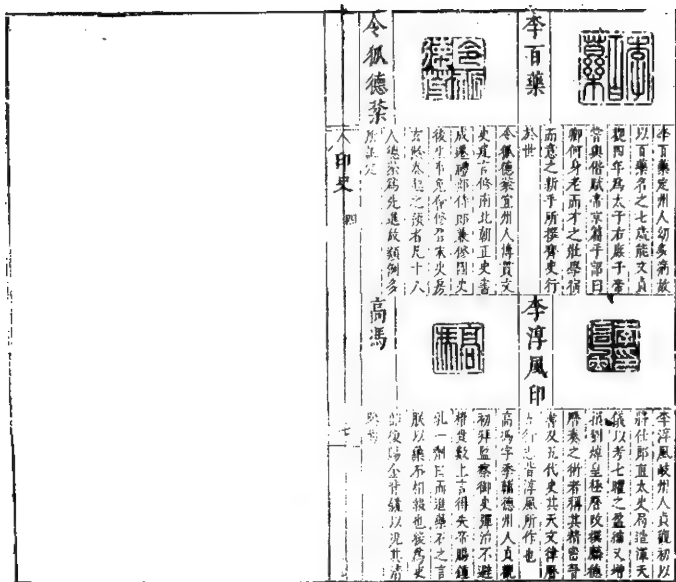 李百藥
李百藥定州人幼多病故
以百藥名之七歲能文貞
觀四年爲太子右庶子帝
嘗與偕賦帝京篇手詔曰
卿何身老而才之壯學宿
而意之新乎所撰齊史行
於世
令狐德棻
令狐德棻宜州人博貫文
史建言修南北朝正史書
成遷禮部侍郎兼修國史
人德棻爲先進故類例多
所
李淳風印
李淳風岐州人貞觀初以
將仕郎直太史局造渾天
儀以考七曜之盈縮又增
損劉焯皇極曆改撰麟德
曆奏之術者稱其精密
書及五代史其天文律曆
五行志皆淳風所作也
高馮
高馮字季輔德州人貞觀
初拜監察御史彈治不避
權貴數上言得失帝賜鍾
乳一劑曰而進藥石之言
朕以藥石相報也後爲吏
部侍郎金背鏡以況其清
印史
四
七